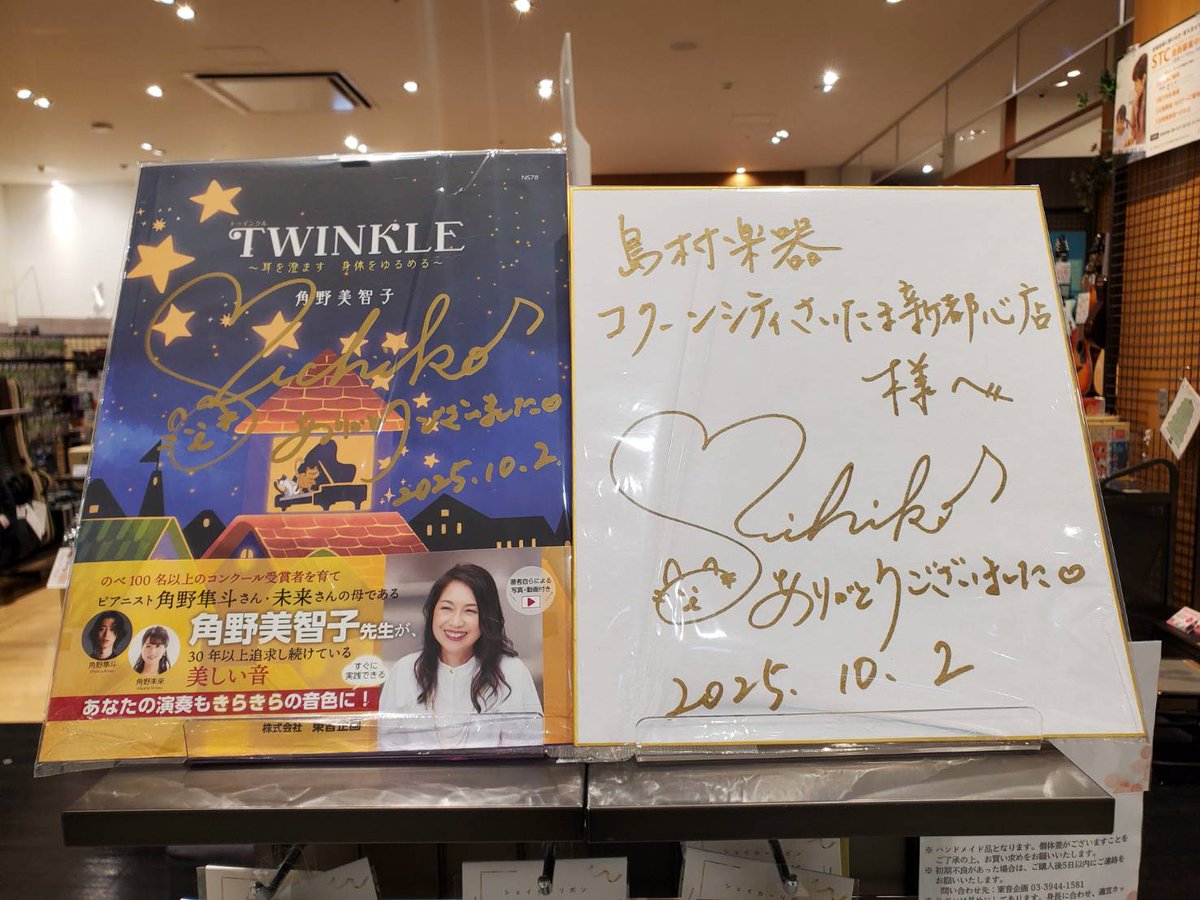 N578
トゥインクル
TWINKLE
～耳を澄ます 身体をゆるめる～
角野美智子
Michiko
ありがとうございました♡
2025.10.2.
のべ100名以上のコンクール受賞者を育て
ピアニスト角野隼斗さん・未来さんの母である
角野美智子先生が、
30年以上追求し続けている
美しい音
あなたの演奏もきらきらの音色に！
角野隼斗
角野未来
すぐに
実践できる
著者自らによる
写真・動画付き
株式会社 東音企画
島村楽器
コクーンシティさいたま新都心店
様へ
Michiko
ありがとうございました♡
2025.10.2
STC
シェイカーリボン
※ハンドメイド品となります。個体差がございますことを
ご了承の上、お買い求めをお願いいたします。
※初期不良があった場合は、ご購入後5日以内にご連絡を
お願いいたします。
問い合わせ先：東音企画 03-3944-1581